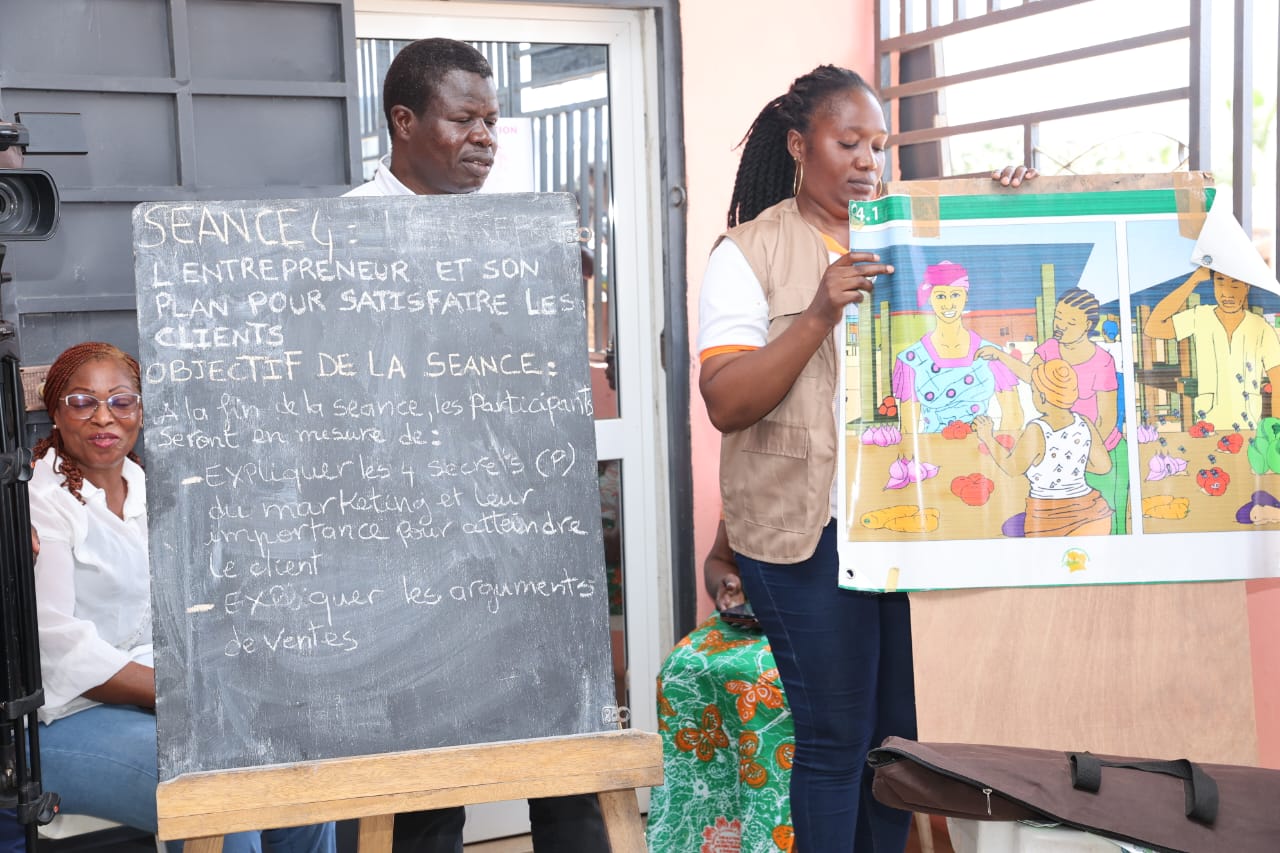 SEANCE 4 :
L'ENTREPRENEUR ET SON
PLAN POUR SATISFAIRE LES
CLIENTS
OBJECTIF DE LA SEANCE :
A la fin de la seance, les participants
seront en mesure de :
- EXPLIQUER les 4 secrets (P)
du marketing et leur
importance pour atteindre
le client
- EXPliquer les arguments
de ventes
C4.1